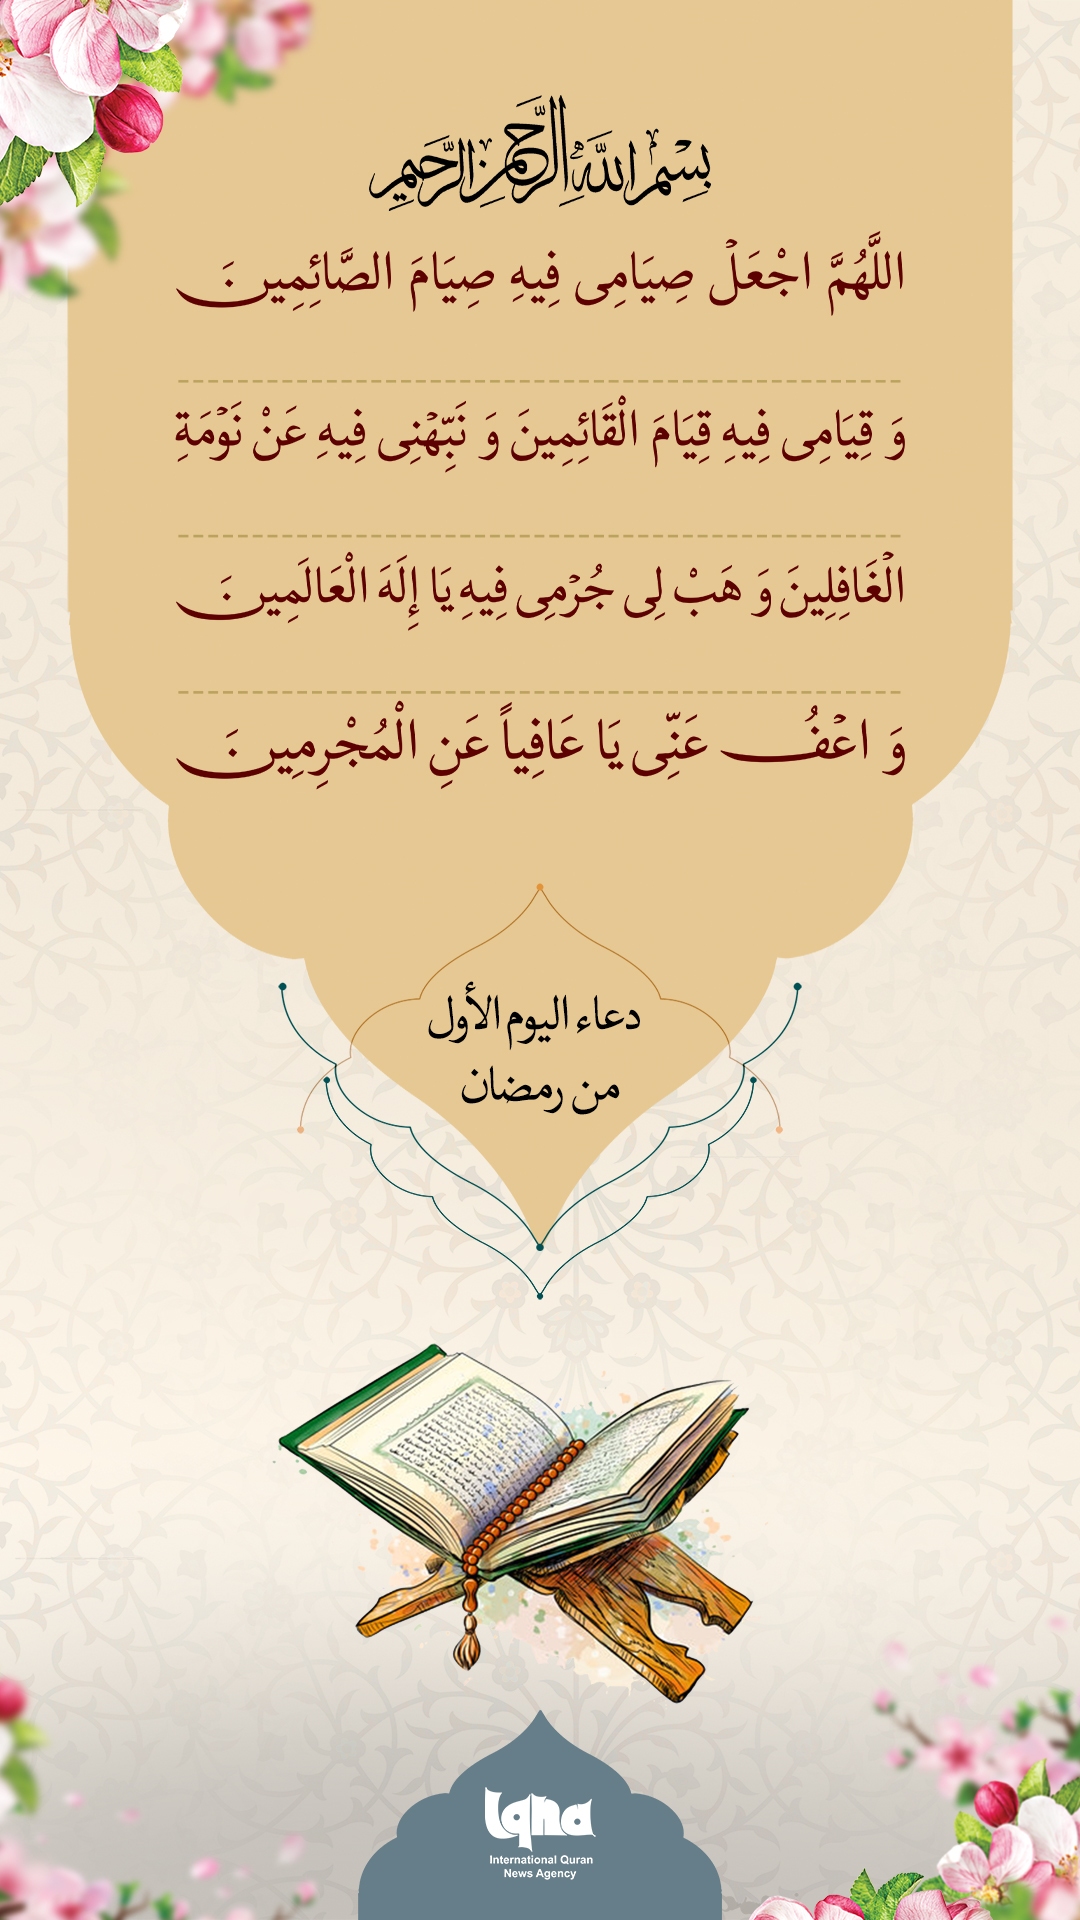 بِسْمِ اللَّهِ الرَّحْمَنِ الرَّحِيمِ
اللَّهُمَّ اجْعَلْ صِيَامِى فِيهِ صِيَامَ الصَّائِمِينَ
وَ قِيَامِى فِيهِ قِيَامَ الْقَائِمِينَ وَ نَبِّهْنِى فِيهِ عَنْ نَوْمَةِ
الْغَافِلِينَ وَ هَبْ لِى جُرْمِى فِيهِ يَا إِلَهَ الْعَالَمِينَ
وَ اعْفُ عَنِّى يَا عَافِياً عَنِ الْمُجْرِمِينَ
دعاء اليوم الأول
من رمضان
iqna
International Quran
News Agency